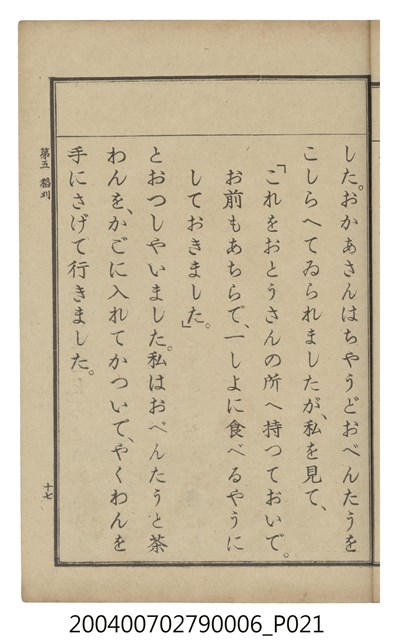 した。おかあさんはちやうどおべんたうを
こしらへてゐられましたが、私を見て、
「これをおとうさんの所へ持つておいで。
お前もあちらで、一しよに食べるやうに
しておきました。」
とおつしやいました。私はおべんたうと茶
わんを、かごに入れてかついで、やくわんを
手にさげて行きました。
第五 稻刈
十七
200400702790006_P021